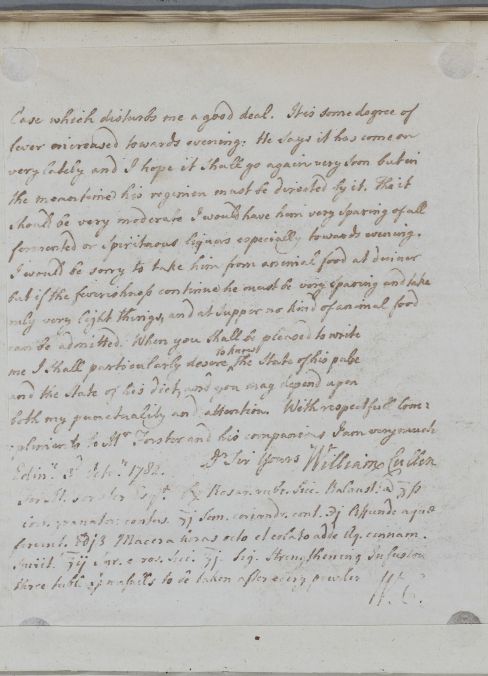 Case which disturbs me a good deal. It is some degree of
fever encreased towards evening: He says it has come on
very lately and I hope it shall go again very soon but in
the meantime his regimen must be directed by it. Tho it
should be very moderate I would have him very sparing of all
fermented or spirituous liquors especially towards evening.
I would be sorry to take him from animal food at dinner
but if the feverishness continue he must be very sparing and take
only very light things, and at supper no kind of animal food
can be admitted. When you shall be pleased to write
me I shall particularly desire to know the State of his pulse
and the State of his diet, and you may depend upon
both my punctuality and attention. With respectfull Com=
=plements to Mr Forster and his companions I am very much
Dr Sir Yours William Cullen
Edinr 3d 1782.
For Forster Esqr Rx Rosar. rubr. Sicc. Balaust. a ʒß
cor. granator. contus. ʒj Sem. coriandr. cont. Affunde aquae
fervent. Macera horas octo et colato adde Aq. cinnam.
Spirit. ʒij Syr. e ros. Sicc. ʒj. Sig. Strengthening Infusion
three table to be taken after every powder
W. C.